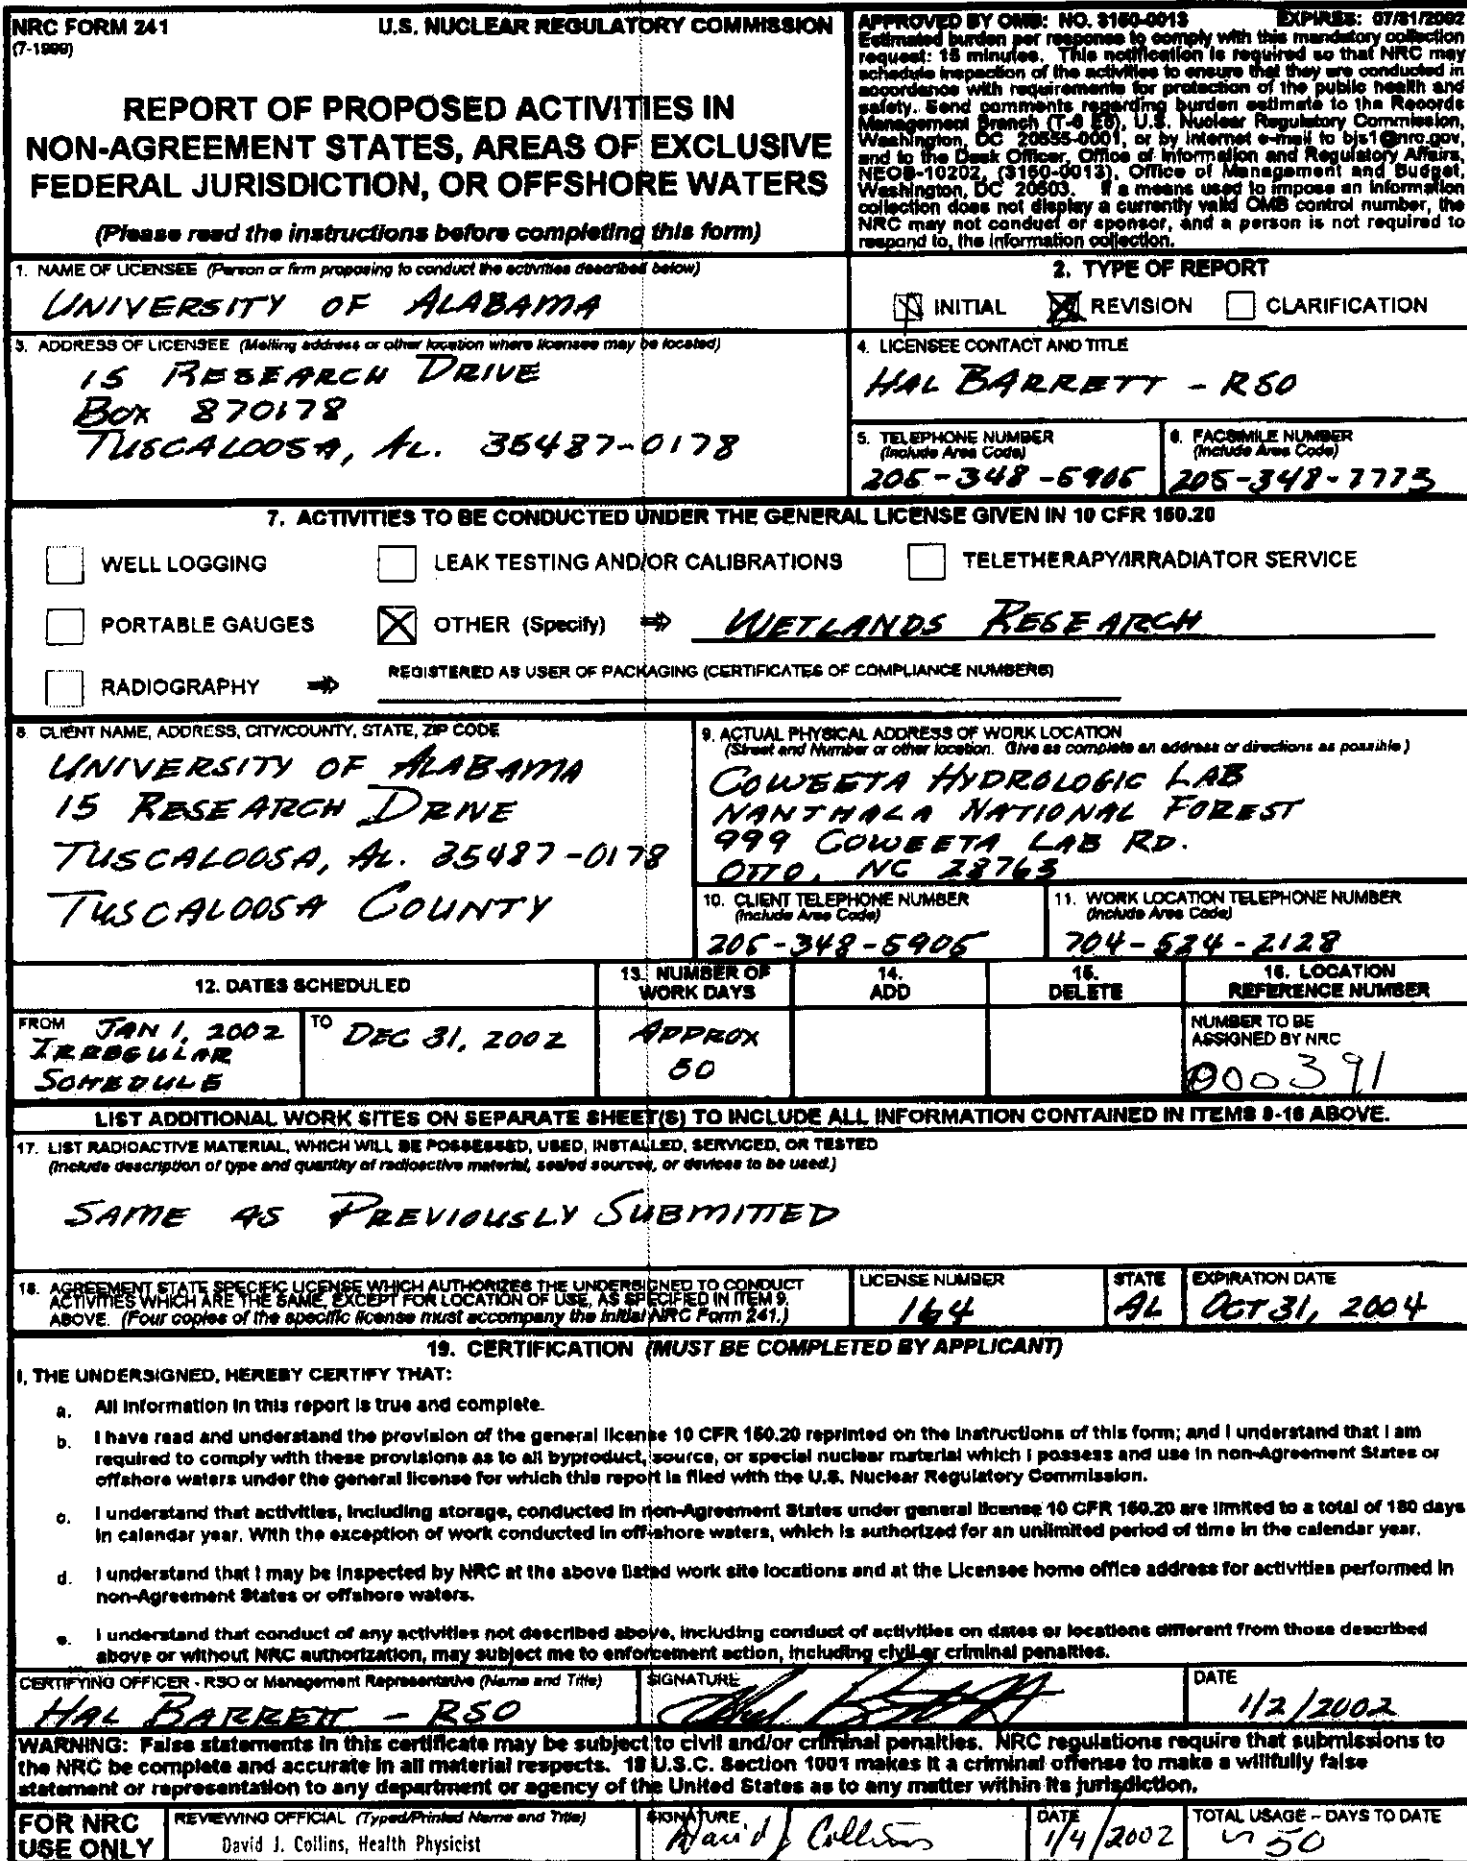 NRC FORM 241
(7-1999)
U.S. NUCLEAR REGULATORY COMMISSION
REPORT OF PROPOSED ACTIVITIES IN
NON-AGREEMENT STATES, AREAS OF EXCLUSIVE
FEDERAL JURISDICTION, OR OFFSHORE WATERS
(Please read the instructions before completing this form)
APPROVED BY OMB: NO. 3150-0013 EXPIRES: 07/31/2002
Estimated burden per response to comply with this mandatory collection
request: 15 minutes. This notification is required so that NRC may
schedule inspection of the activities to ensure that they are conducted in
accordance with requirements for protection of the public health and
safety. Send comments regarding burden estimate to the Records
Management Branch (T-6 E6), U.S. Nuclear Regulatory Commission,
Washington, DC 20555-0001, or by internet e-mail to bjs1@nrc.gov,
and to the Desk Officer, Office of Information and Regulatory Affairs,
NEOB-10202, (3150-0013), Office of Management and Budget,
Washington, DC 20503. If a means used to impose an information
collection does not display a currently valid OMB control number, the
NRC may not conduct or sponsor, and a person is not required to
respond to, the information collection.
1. NAME OF LICENSEE (Person or firm proposing to conduct the activities described below)
UNIVERSITY OF ALABAMA
2. TYPE OF REPORT
INITIAL REVISION CLARIFICATION
3. ADDRESS OF LICENSEE (Mailing address or other location where licensee may be located)
15 RESEARCH DRIVE
BOX 870178
TUSCALOOSA, AL. 35487-0178
4. LICENSEE CONTACT AND TITLE
HAL BARRETT - RSO
5. TELEPHONE NUMBER
(Include Area Code)
205-348-5905
6. FACSIMILE NUMBER
(Include Area Code)
205-348-7773
7. ACTIVITIES TO BE CONDUCTED UNDER THE GENERAL LICENSE GIVEN IN 10 CFR 150.20
WELL LOGGING LEAK TESTING AND/OR CALIBRATIONS TELETHERAPY/IRRADIATOR SERVICE
PORTABLE GAUGES OTHER (Specify) WETLANDS RESEARCH
RADIOGRAPHY REGISTERED AS USER OF PACKAGING (CERTIFICATES OF COMPLIANCE NUMBERS)
8. CLIENT NAME, ADDRESS, CITY/COUNTY, STATE, ZIP CODE
UNIVERSITY OF ALABAMA
15 RESEARCH DRIVE
TUSCALOOSA, AL. 35487-0178
TUSCALOOSA COUNTY
9. ACTUAL PHYSICAL ADDRESS OF WORK LOCATION
(Street and Number or other location. Give as complete an address or directions as possible)
COWEETA HYDROLOGIC LAB
NANTHALA NATIONAL FOREST
999 COWEETA LAB RD.
OTTO, NC 28763
10. CLIENT TELEPHONE NUMBER
(Include Area Code)
205-348-5905
11. WORK LOCATION TELEPHONE NUMBER
(Include Area Code)
704-524-2128
12. DATES SCHEDULED
13. NUMBER OF
WORK DAYS
14.
ADD
15.
DELETE
16. LOCATION
REFERENCE NUMBER
FROM JAN 1, 2002
IRREGULAR
SCHEDULE
TO DEC 31, 2002
APPROX
50
NUMBER TO BE
ASSIGNED BY NRC
000391
LIST ADDITIONAL WORK SITES ON SEPARATE SHEET(S) TO INCLUDE ALL INFORMATION CONTAINED IN ITEMS 8-16 ABOVE.
17. LIST RADIOACTIVE MATERIAL, WHICH WILL BE POSSESSED, USED, INSTALLED, SERVICED, OR TESTED
(Include description of type and quantity of radioactive material, sealed sources, or devices to be used.)
SAME AS PREVIOUSLY SUBMITTED
18. AGREEMENT STATE SPECIFIC LICENSE WHICH AUTHORIZES THE UNDERSIGNED TO CONDUCT
ACTIVITIES WHICH ARE THE SAME, EXCEPT FOR LOCATION OF USE, AS SPECIFIED IN ITEM 9
ABOVE. (Four copies of the specific license must accompany the initial NRC Form 241.)
LICENSE NUMBER
164
STATE
AL
EXPIRATION DATE
OCT 31, 2004
19. CERTIFICATION (MUST BE COMPLETED BY APPLICANT)
I, THE UNDERSIGNED, HEREBY CERTIFY THAT:
a. All information in this report is true and complete.
b. I have read and understand the provision of the general license 10 CFR 150.20 reprinted on the instructions of this form; and I understand that I am
required to comply with these provisions as to all byproduct, source, or special nuclear material which I possess and use in non-Agreement States or
offshore waters under the general license for which this report is filed with the U.S. Nuclear Regulatory Commission.
c. I understand that activities, including storage, conducted in non-Agreement States under general license 10 CFR 150.20 are limited to a total of 180 days
in calendar year. With the exception of work conducted in off-shore waters, which is authorized for an unlimited period of time in the calendar year.
d. I understand that I may be inspected by NRC at the above listed work site locations and at the Licensee home office address for activities performed in
non-Agreement States or offshore waters.
e. I understand that conduct of any activities not described above, including conduct of activities on dates or locations different from those described
above or without NRC authorization, may subject me to enforcement action, including civil or criminal penalties.
CERTIFYING OFFICER - RSO or Management Representative (Name and Title)
HAL BARRETT - RSO
SIGNATURE
Hal Barrett
DATE
1/2/2002
WARNING: False statements in this certificate may be subject to civil and/or criminal penalties. NRC regulations require that submissions to
the NRC be complete and accurate in all material respects. 18 U.S.C. Section 1001 makes it a criminal offense to make a willfully false
statement or representation to any department or agency of the United States as to any matter within its jurisdiction.
FOR NRC
USE ONLY
REVIEWING OFFICIAL (Typed/Printed Name and Title)
David J. Collins, Health Physicist
SIGNATURE
David J Collins
DATE
1/4/2002
TOTAL USAGE - DAYS TO DATE
~50